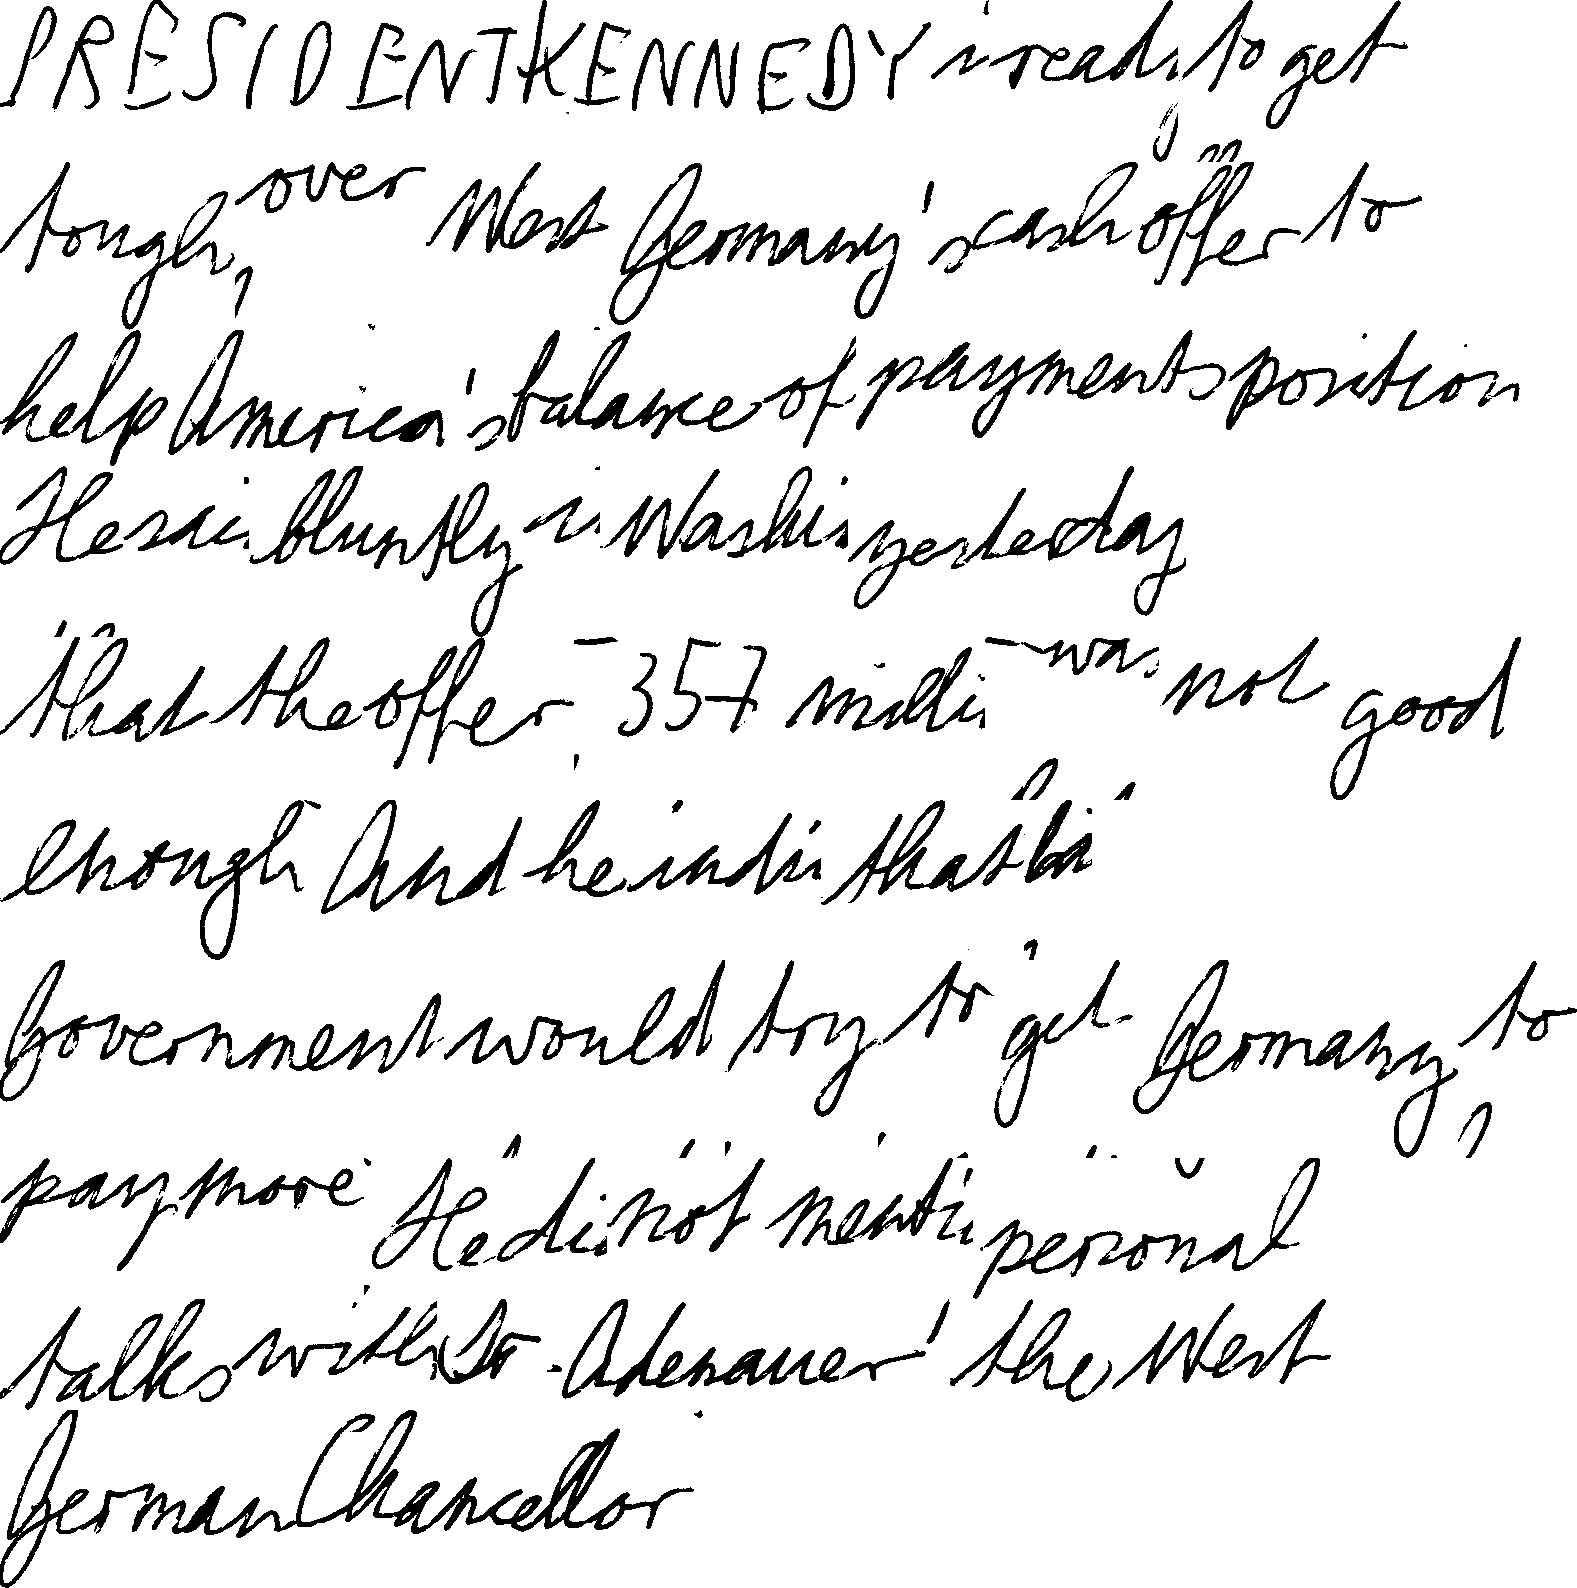 PRESIDENT KENNEDY is ready to get
tough over West Germany's cash offer to
help America's balance of payments position
He said bluntly in Washin yesterday
that the offer - 357 milli - was not good
enough And he indi that his
Government would try to get Germany to
pay more He did not menti personal
talks with Dr. Adenauer, the West
German Chancellor